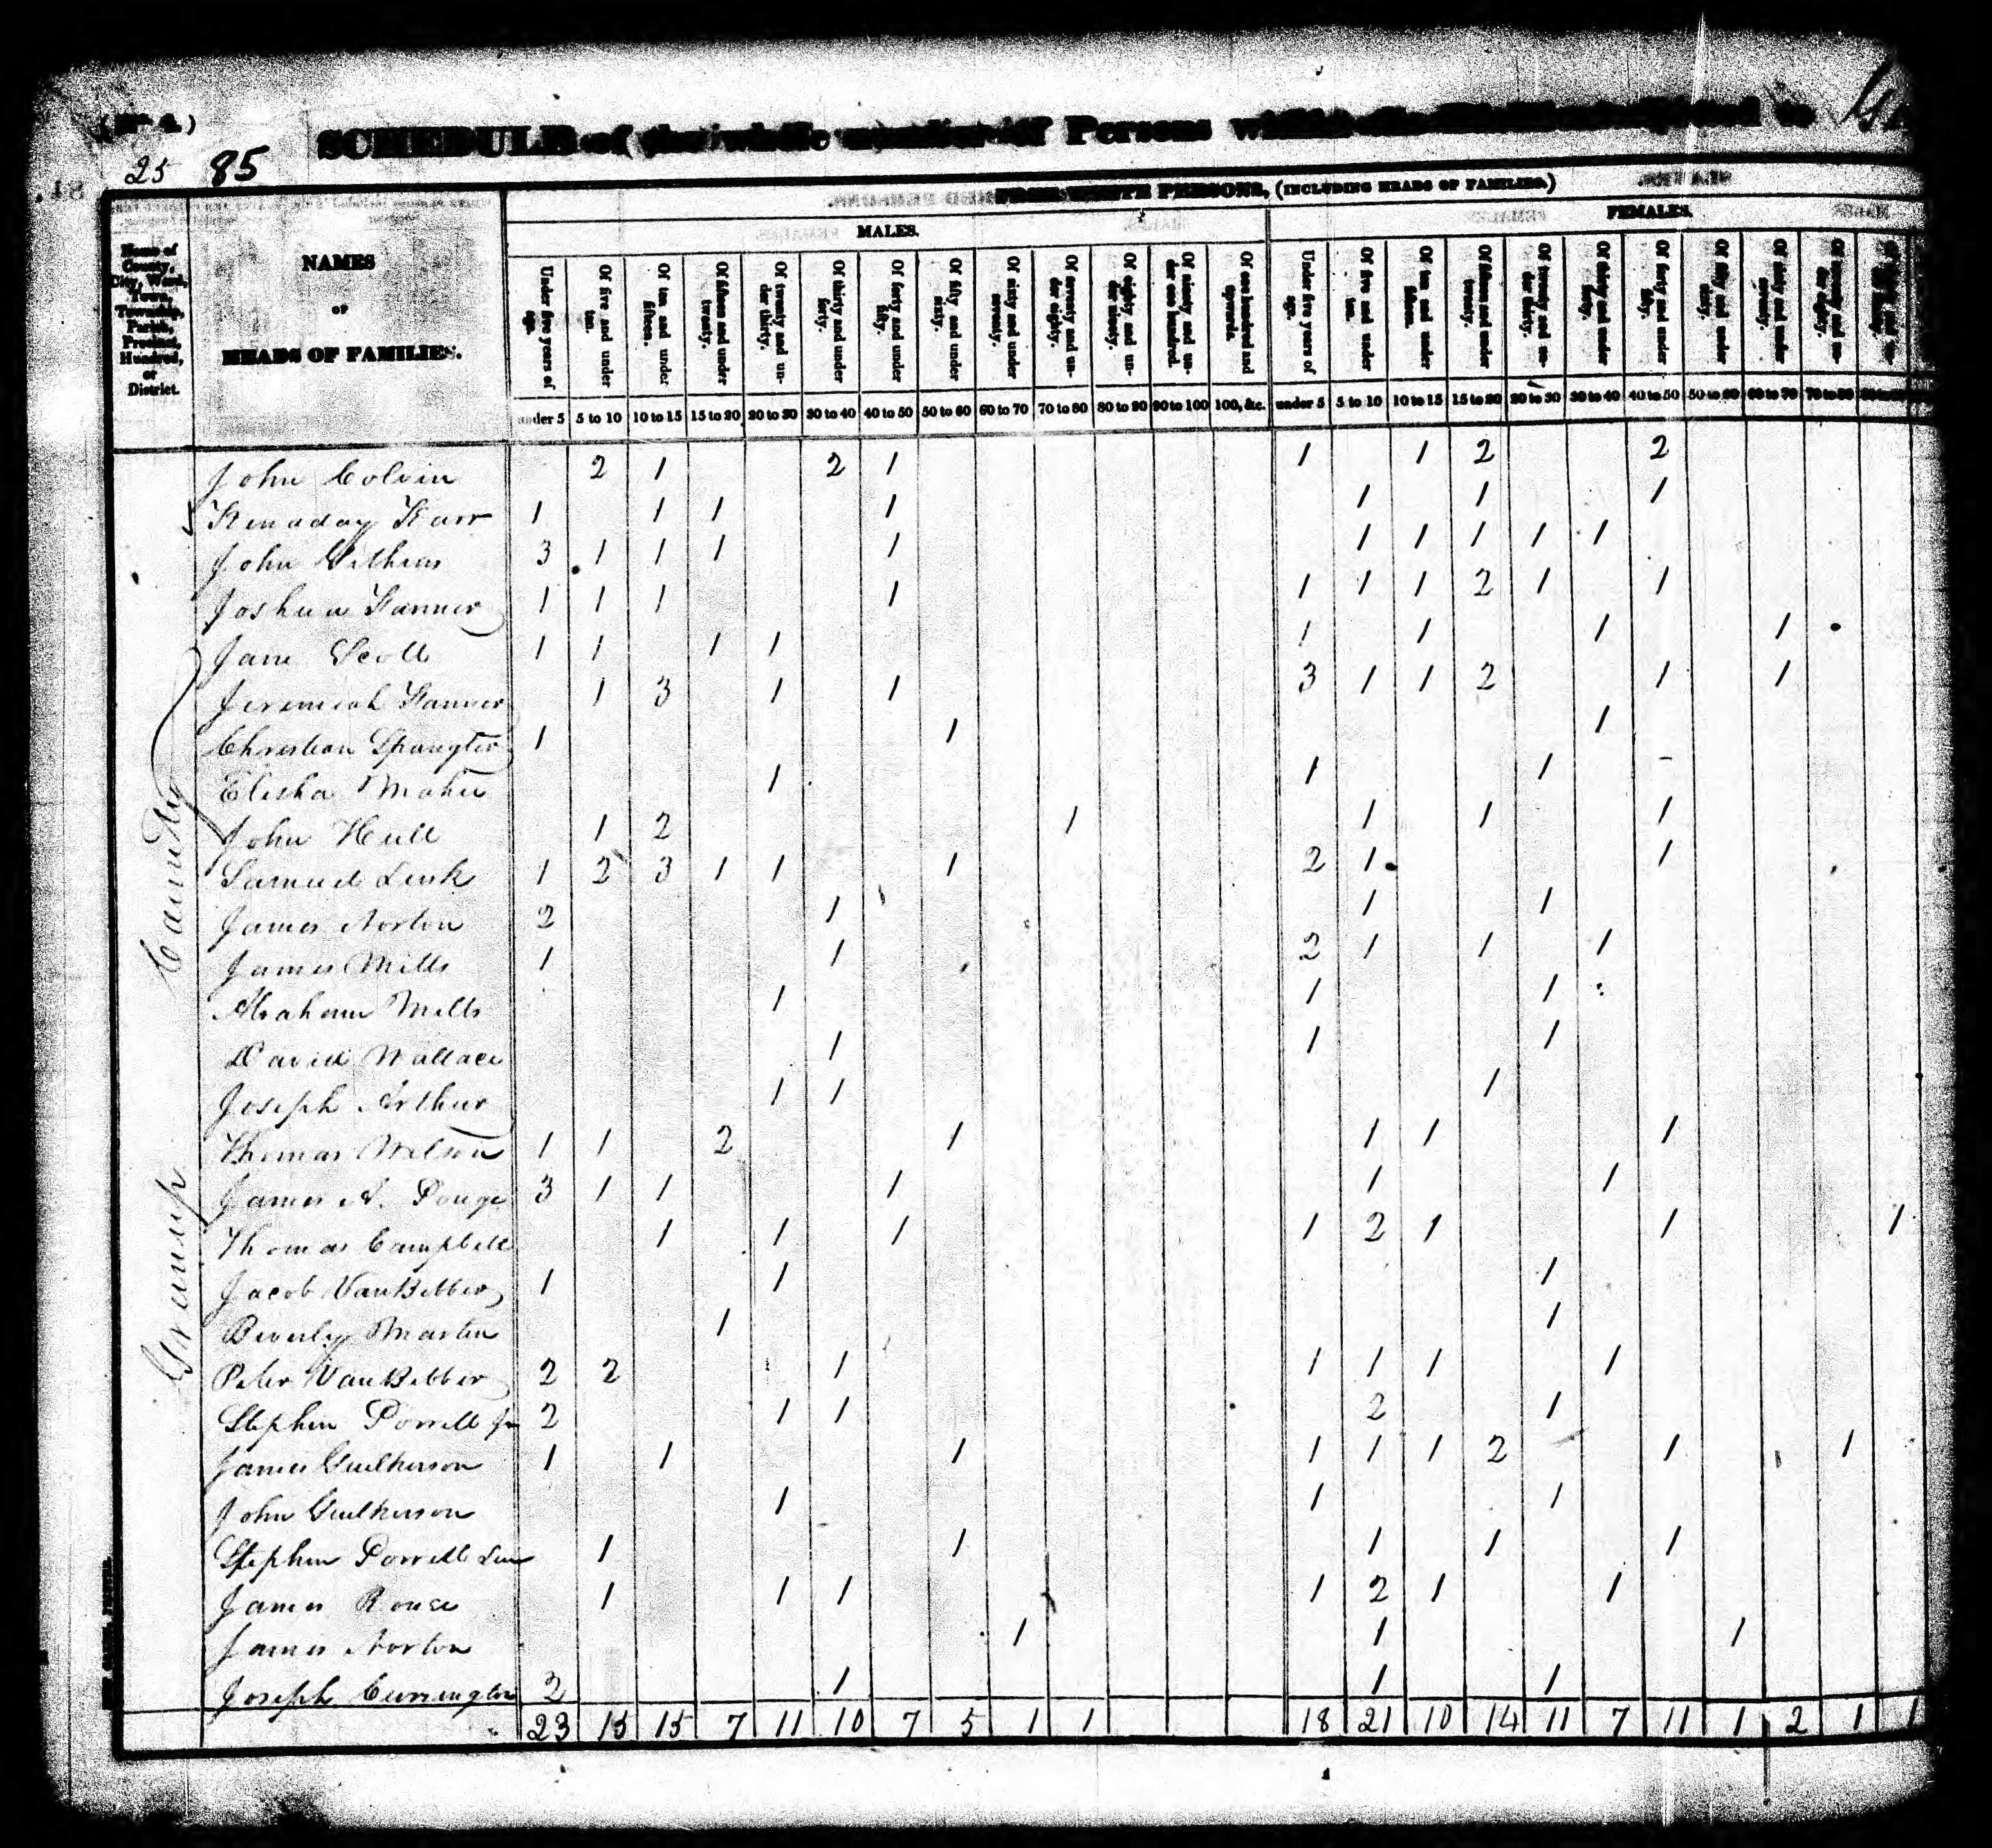 (No. 4.)
25 85
SCHEDULE of the whole number of Persons
FREE WHITE PERSONS, (INCLUDING HEADS OF FAMILIES.)
MALES. FEMALES.
Name of County, City, Ward, Town, Township, Parish, Precinct, Hundred, or District.
NAMES OF HEADS OF FAMILIES.
Under five years of age. Of five and under ten. Of ten and under fifteen. Of fifteen and under twenty. Of twenty and under thirty. Of thirty and under forty. Of forty and under fifty. Of fifty and under sixty. Of sixty and under seventy. Of seventy and under eighty. Of eighty and under ninety. Of ninety and under one hundred. Of one hundred and upwards. Under five years of age. Of five and under ten. Of ten and under fifteen. Of fifteen and under twenty. Of twenty and under thirty. Of thirty and under forty. Of forty and under fifty. Of fifty and under sixty. Of sixty and under seventy. Of seventy and under eighty.
under 5 5 to 10 10 to 15 15 to 20 20 to 30 30 to 40 40 to 50 50 to 60 60 to 70 70 to 80 80 to 90 90 to 100 100, &c. under 5 5 to 10 10 to 15 15 to 20 20 to 30 30 to 40 40 to 50 50 to 60 60 to 70 70 to 80
John Colvin 2 1 2 1 1 1 2 2
1 1 1 1 1 1 1
John 3 1 1 1 1 1 1 1 1 1
Joshua 1 1 1 1 1 1 1 2 1 1
Jane Scott 1 1 1 1 1 1 1 1
Jeremiah 1 3 1 1 3 1 1 2 1 1
Christian Spangler 1 1 1
Elisha Maher 1 1 1 -
John Hull 1 2 1 1 1 1
Samuel Link 1 2 3 1 1 1 2 1 1
James Norton 2 1 1 1
James Mills 1 1 2 1 1 1
Abraham Mills 1 1 1
David Wallace 1 1 1
Joseph Arthur 1 1 1
Thomas Wilson 1 1 2 1 1 1 1
James A. 3 1 1 1 1 1
Thomas Campbell 1 1 1 1 2 1 1 1
Jacob VanBibber 1 1 1
Beverly Martin 1 1
Peter VanBibber 2 2 1 1 1 1 1
Stephen Jr 2 1 1 2 1
James 1 1 1 1 1 1 2 1 1
John 1 1 1
Stephen 1 1 1 1 1
James Rouse 1 1 1 1 2 1 1
James Norton 1 1 1
Joseph Currington 2 1 1 1
23 15 15 7 11 10 7 5 1 1 18 21 10 14 11 7 11 1 2 1 1
County